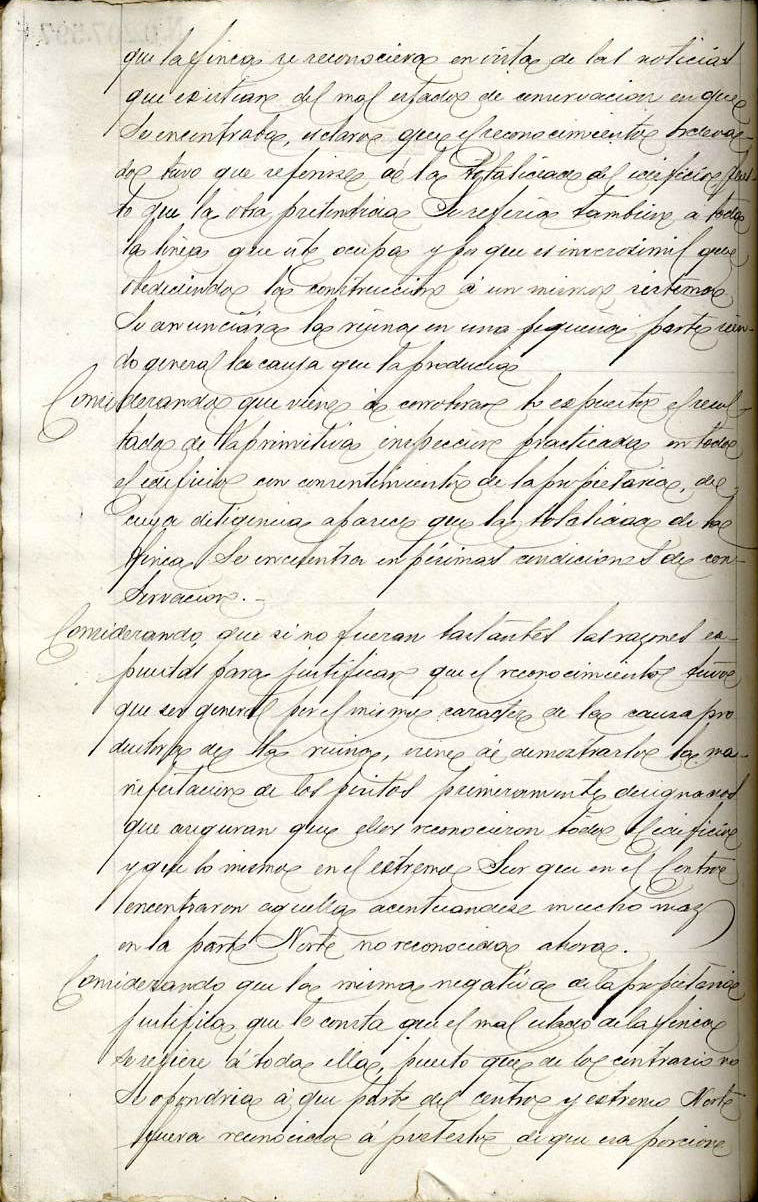 que la finca se reconociera en vista de las noticias
que existian del mal estado de conservacion en que
se encontraba, es claro que el reconocimiento ordena-
do tuvo que referirse á la totalidad del edificio pues-
to que la obra pretendida se referia tambien a toda
la linea que este ocupa y por que es inverosimil que
obedeciendo la construccion á un mismo sistema
se anunciára la ruina en una pequeña parte sien-
do general la causa que la producia
Considerando que viene á corroborar lo expuesto el resul-
tado de la primitiva inspeccion practicada en todo
el edificio con consentimiento de la propietaria, de
cuya diligencia aparece que la totalidad de la
finca se encuentra en pésimas condiciones de con-
servacion.-
Considerando, que si no fueran bastantes las razones ex-
puestas para justificar que el reconocimiento tuvo
que ser general por el mismo caracter de la causa pro
ductora de la ruina, viene á demostrarlo la ma-
nifestacion de los peritos primeramente designados
que aseguran que ellos reconocieron todo el edificio
y que lo mismo en el extremo Sur que en el Centro
encontraron aquella acentuandose mucho mas
en la parte Norte no reconocida ahora.
Considerando que la misma negativa de la propietaria
justifica que le consta que el mal estado de la finca
se refiere á toda ella, puesto que de lo contrario no
se opondria á que parte del centro y extremo Norte
fuera reconocida á pretesto de que esa porcion